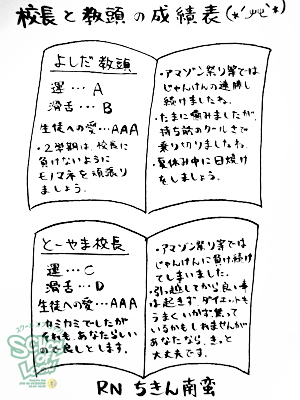 校長と教頭の成績表(*´艸`*)
よしだ教頭
運…A
滑舌…B
生徒への愛…AAA
・2学期は、校長に
負けないように
モノマネを頑張り
ましょう。
・アマゾン祭り等では
じゃんけんの連勝し
続けましたね。
・たまに噛みましたが、
持ち前のクールさで
乗り切りましたね。
・夏休み中に日焼け
をしましょう。
とーやま校長
運…C
滑舌…D
生徒への愛…AAA
・カミカミでしたが
それも、あなたらしい
ので良しとします。
・アマゾン祭り等では
じゃんけんに負け続け
てしまいました。
・引っ越ししてから良い事
は起きず、ダイエットも
うまくいかず焦って
いるかもしれませんが
あなたなら、きっと
大丈夫です。
RN ちきん南蛮